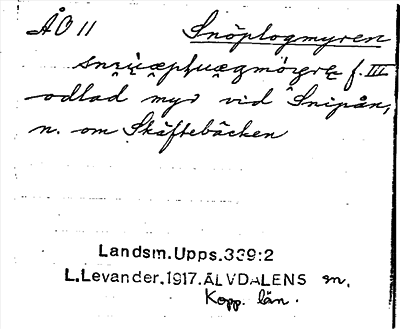 ÅO 11 Snöplogmyren
f. III
odlad myr vid Snipån,
n. om Skäftebäcken
Landsm.Upps.339:2
L.Levander.1917.ÄLVDALENS sn.
Kopp. län.